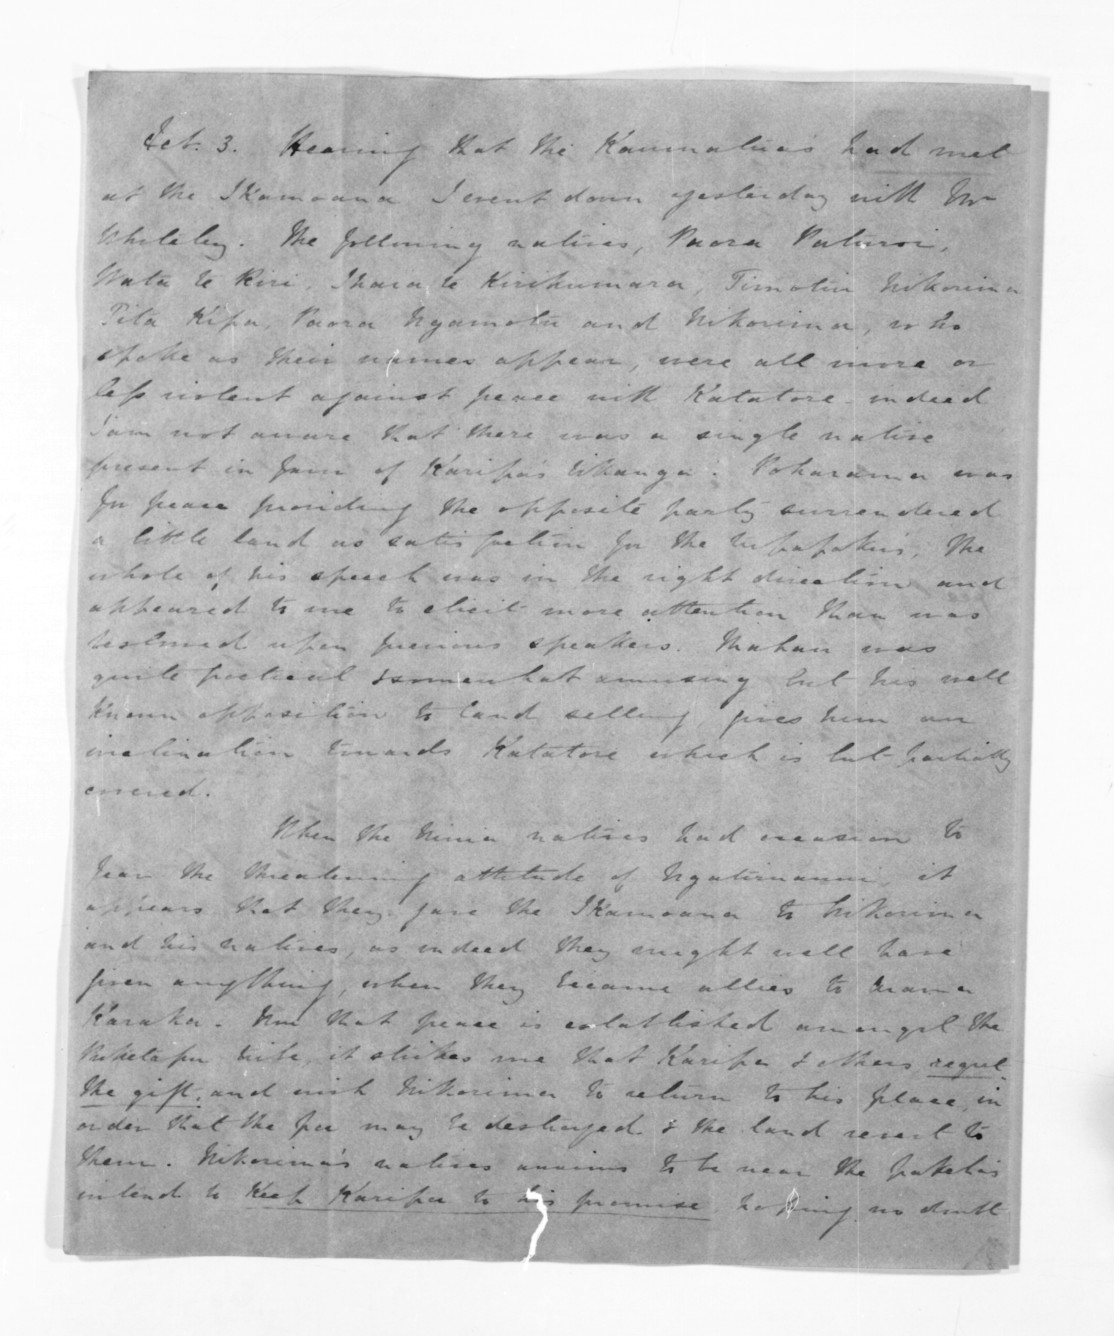 Feb. 3. Hearing that the Kaumatuas had met
at the Ikamoana I went down yesterday with Mr
Whiteley. The following natives, Paora
Wata te Kiri, Ihaia te Kirikumara, Timotiu Nikorima
Tita Kipa, Paora Ngamotu and Nikorima, who
spoke as their names appear, were all more or
less violent against peace with Katatore indeed
I am not aware that there was a single native
present in favor of Karipa's tikanga. Poharama was
for peace providing the opposite party surrendered
a little land as satisfaction for the tupapakus, the
whole of his speech was in the right direction and
appeared to me to elicit more attention than was
bestowed upon previous speakers. Mahau was
quite poetical & somewhat amusing but his well
known opposition to land selling, gives him an
inclination towards Katatore which is but partially
covered.
When the natives had occasion to
fear the threatening attitude of Ngatiruanui, it
appears that they gave the Ikamoana to Nikorima
and his natives, as indeed they might well have
given anything, when they became allies to
Karaka. Now that peace is established amongst the
Puketapu tribe, it strikes me that Karipa & others regret
the gift, and wish Nikorima to return to his place, in
order that the pa may be destroyed & the land revert to
them. Nikorima's natives anxious to be near the pakehas
intend to keep Karipa to his promise hoping no doubt